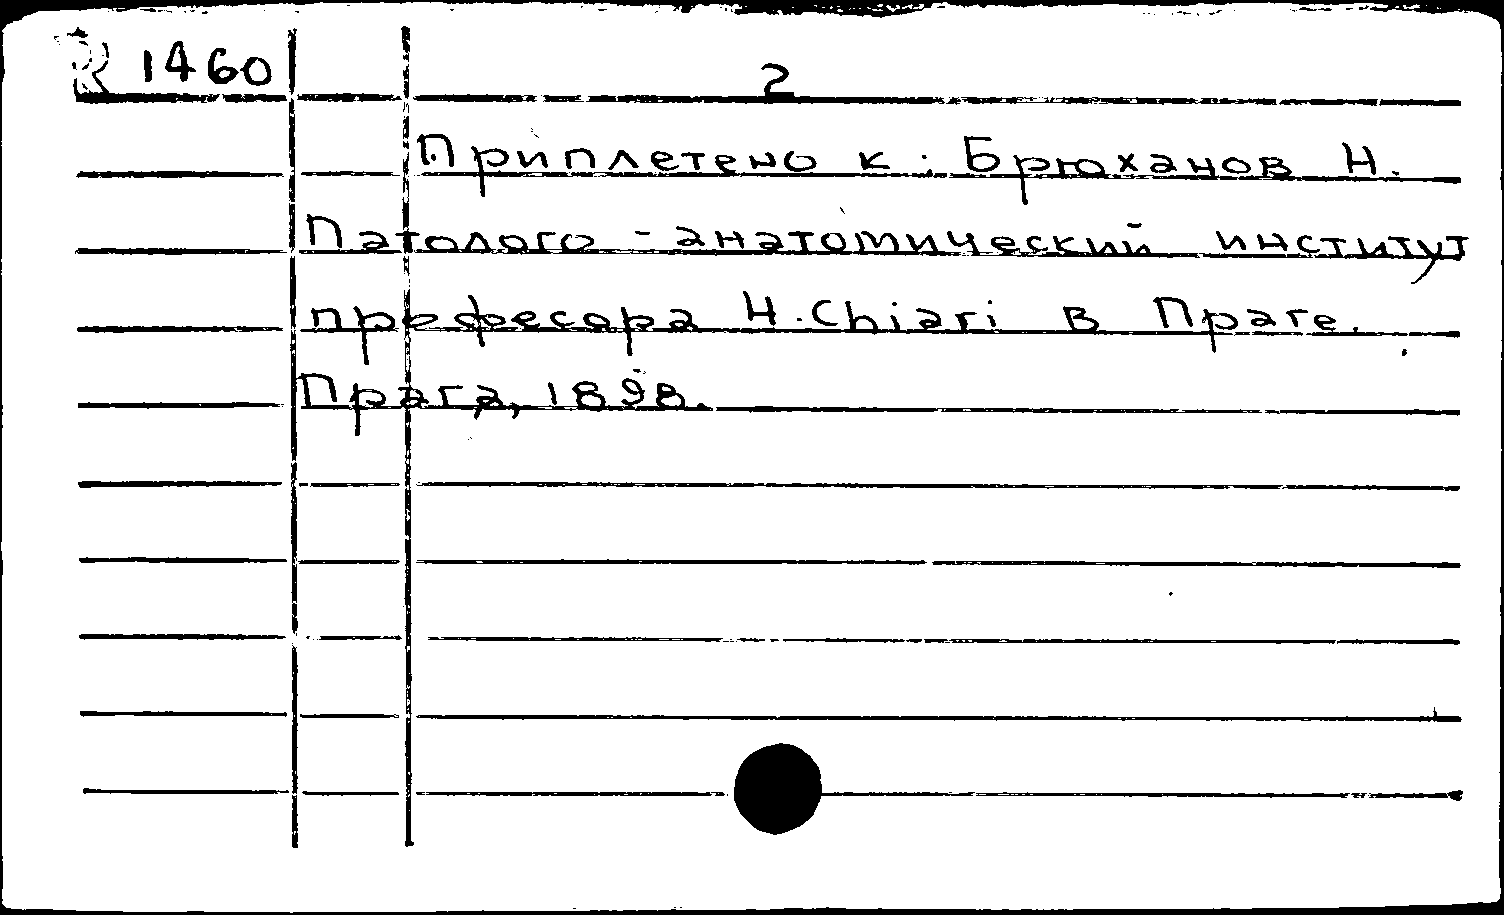 R 1460
2
Приплетено к: Брюханов Н.
Патолого-анатомический институт
професора H.Chiari в Праге.
Прага, 1898.